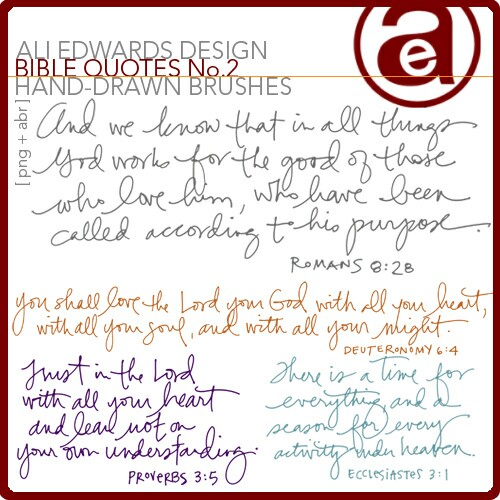 ALI EDWARDS DESIGN
BIBLE QUOTES No.2
HAND-DRAWN BRUSHES
[png + abr]
ae
And we know that in all things
God works for the good of those
who love him, who have been
called according to his purpose.
ROMANS 8:28
You shall love the Lord your God with all your heart,
with all your soul, and with all your might.
DEUTERONOMY 6:4
Trust in the Lord
with all your heart
and lean not on
your own understanding.
PROVERBS 3:5
There is a time for
everything, and a
season for every
activity under heaven.
ECCLESIASTES 3:1